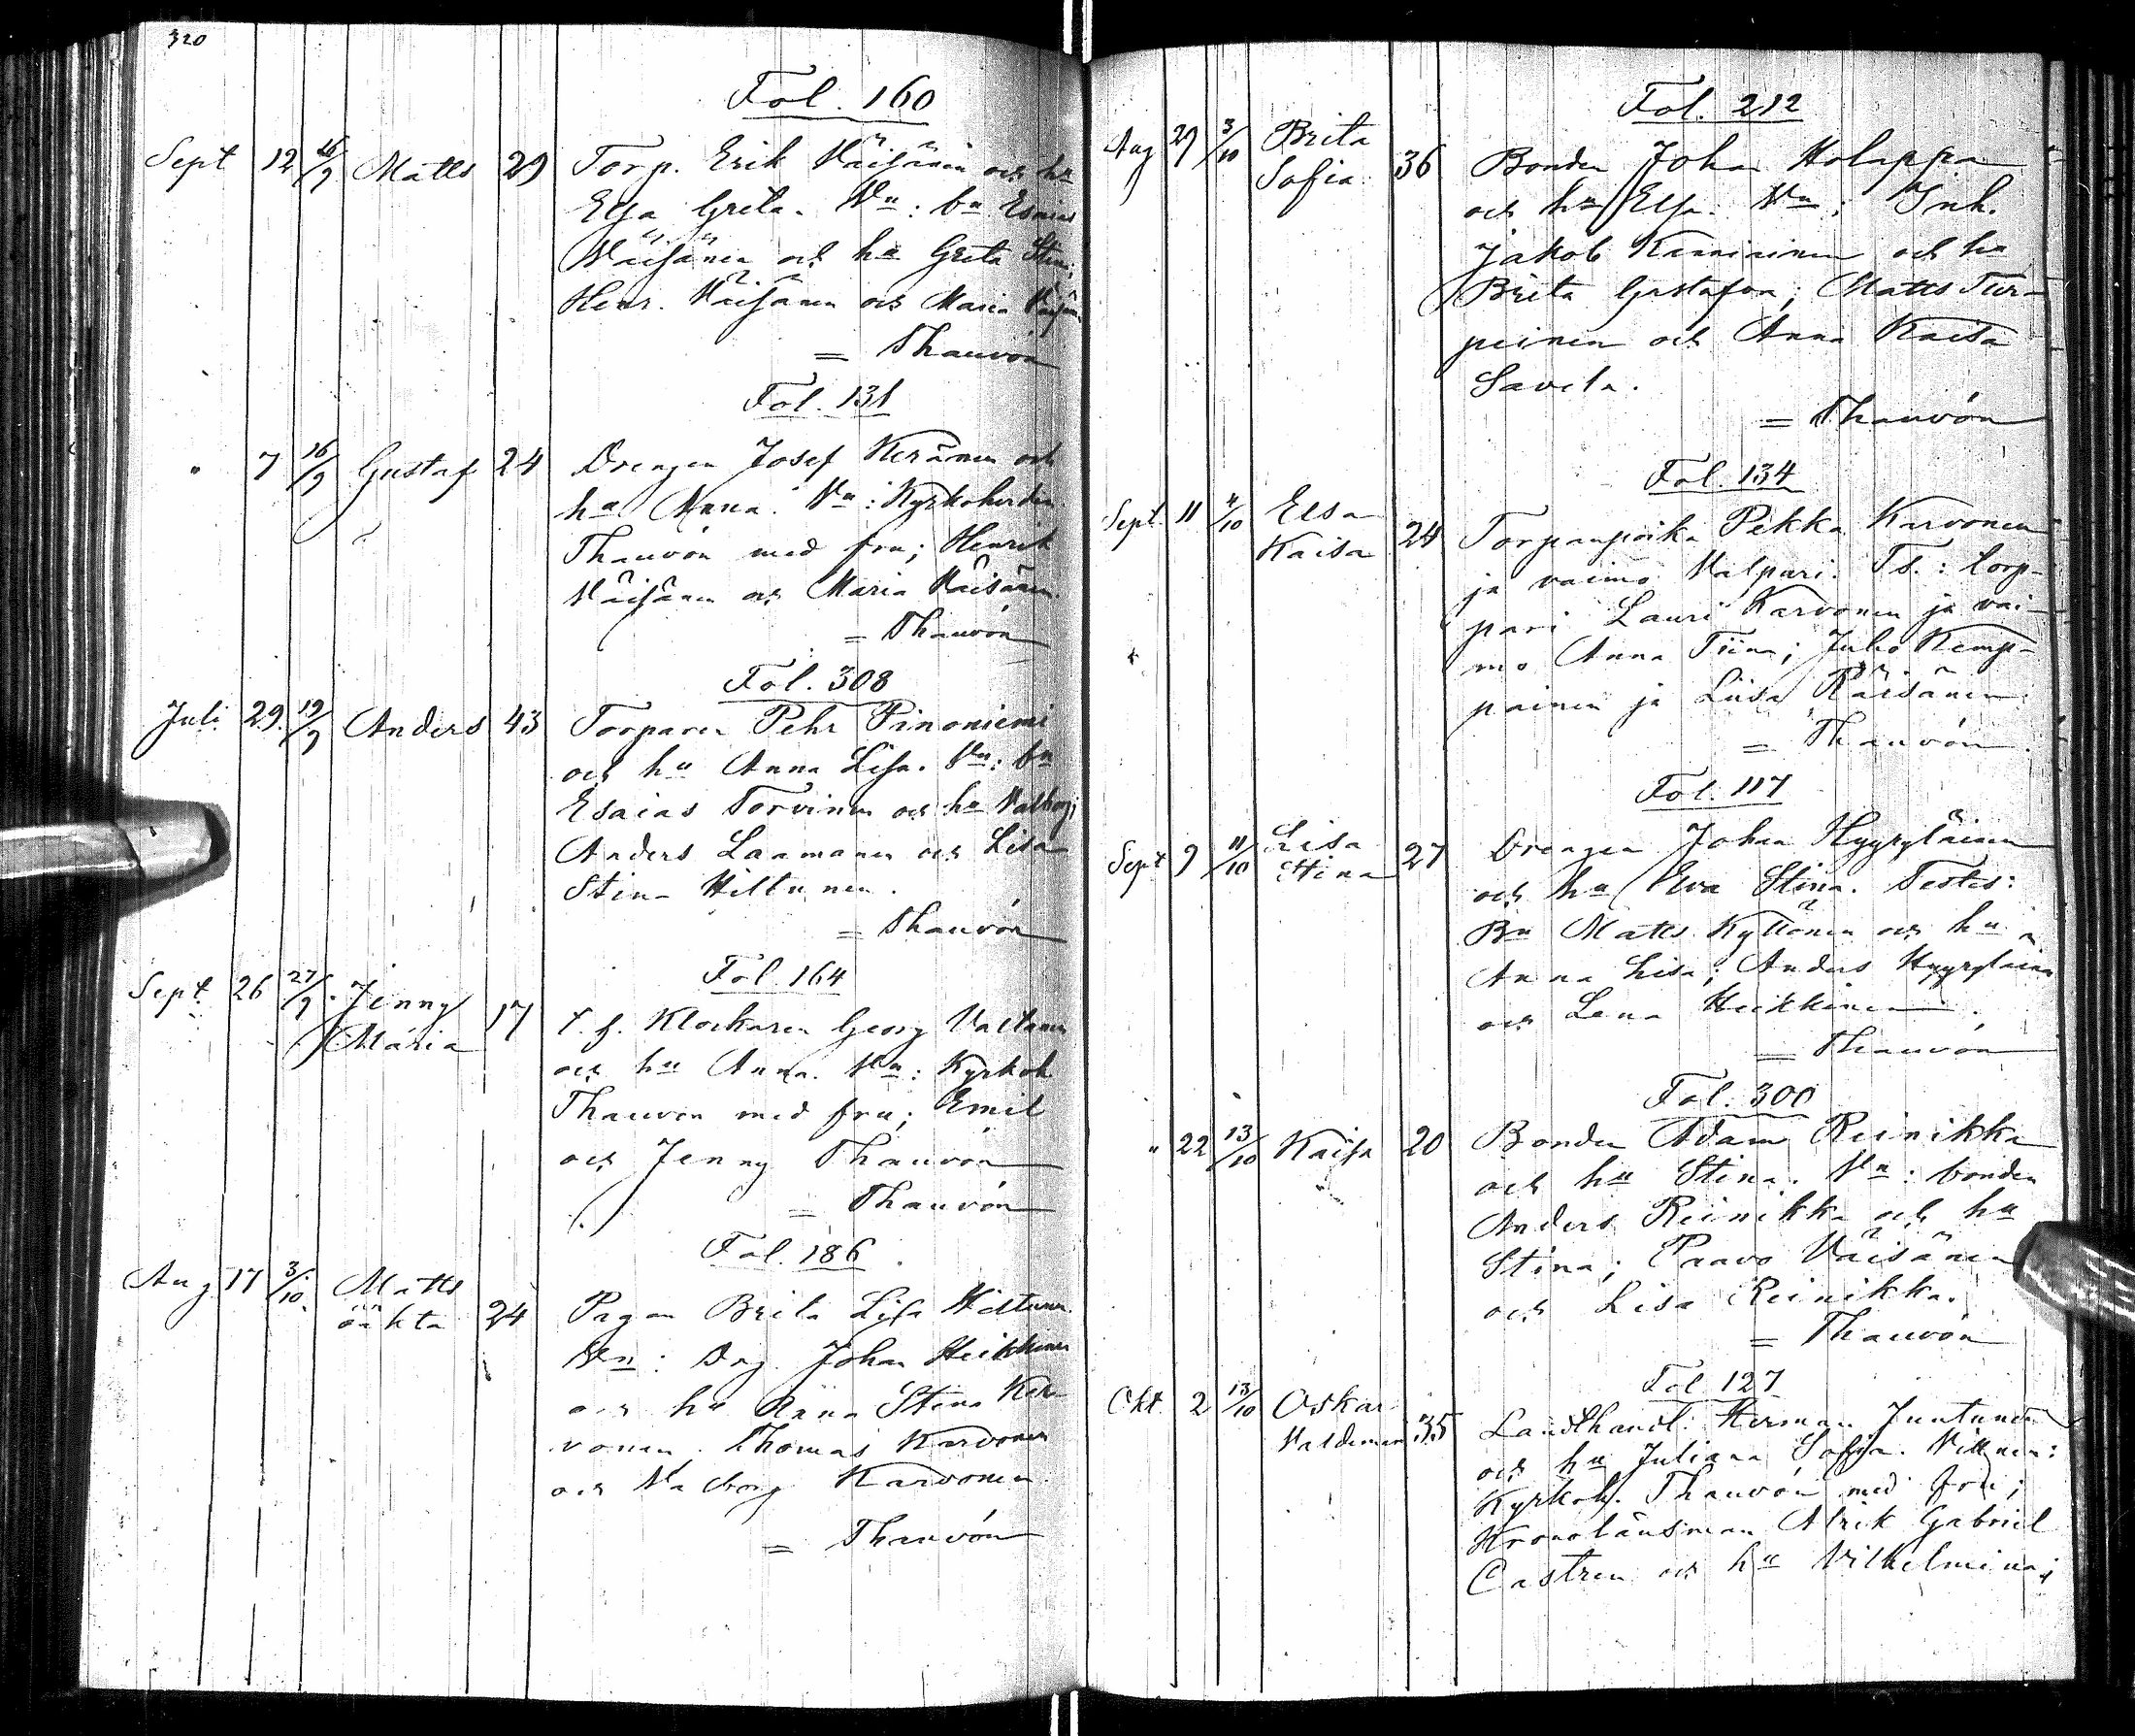 320
Fol. 160
Sept 12 16/9 Matts 29 Torp. Erik Väisänen och hu
Elsa Greta. Vn: bn Esaias
Väisänen och hu Greta Stina;
Henr. Väisänen och Maria Väisänen
= Thauvón
Fol. 131
" 7 16/9 Gustaf 24 Drengen Josef Keränen och
hu Anna. Vn: Kyrkoherden
Thauvón med fru; Henrik
Väisänen och Maria Väisänen.
= Thauvón
Fol. 308
Juli 29. 19/9 Anders 43 Torparen Pehr Pinoniemi
och hu Anna Lisa. Vn: bn
Esaias Torvinen och hu Valborg;
Anders Laamanen och Lisa
Stina Hiltunen.
= Thauvón
Fol. 164
Sept. 26 27/9 Jenny
Maria 17 t. f. Klockaren Georg Valtanen
och hu Anna. Vn: Kyrkoh.
Thauvón med fru; Emil
och Jenny Thauvón
= Thauvón
Fol. 186
Aug 17 3/10 Matts
oäkta 24 Pigan Brita Lisa Hiltunen
Vn: Drg. Johan Heikkinen
och hu Anna Stina Kar-
vonen; Thomas Karvonen
och Valborg Karvonen.
= Thauvón
Fol. 212
Aug 29 3/10 Brita
Sofia 36 Bonden Johan Holappa
och hu Elsa. Vn: Inh.
Jakob Kemiläinen och hu
Brita Gustafva; Matts Tur-
peinen och Anna Kaisa
Savela.
= Thauvón
Fol. 134
Sept. 11 4/10 Elsa
Kaisa 24 Torpanpoika Pekka Karvonen
ja vaimo Valpuri. Ts.: torp-
pari Lauri Karvonen ja vai-
mo Anna Tiina; Juho Kemp-
painen ja Liisa Räisänen.
= Thauvón.
Fol. 117
Sept 9 11/10 Lisa
Stina 27 Drengen Johan Hyyryläinen
och hu Eva Stina. Testes:
Bn Matts Kyllönen och hu
Anna Lisa; Anders Hyyryläinen
och Lena Heikkinen.
= Thauvón
Fol. 300
" 22 13/10 Kaisa 20 Bonden Adam Reinikka
och hu Stina. Vn: bonden
Anders Reinikka och hu
Stina; Paavo Väisänen
och Lisa Reinikka.
= Thauvón
Fol. 127
Okt. 2 13/10 Oskar
Valdemar 35 Landthandl. Herman Juntunen
och hu Juliana Sofia. Vittnen:
Kyrkoh. Thauvón med fru;
Kronolänsman Alrik Gabriel
Castren och hu Vilhelmina;